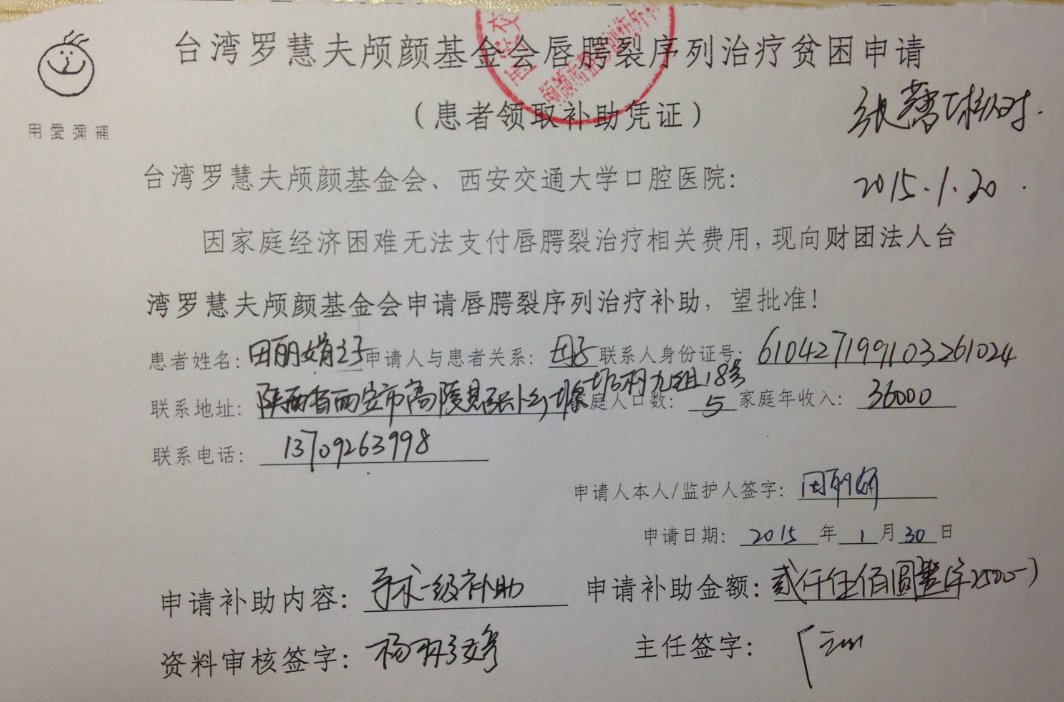 台湾罗慧夫颅颜基金会唇腭裂序列治疗贫困申请
（患者领取补助凭证）
用愛彌補
2015.1.30
台湾罗慧夫颅颜基金会、西安交通大学口腔医院：
因家庭经济困难无法支付唇腭裂治疗相关费用，现向财团法人台
湾罗慧夫颅颜基金会申请唇腭裂序列治疗补助，望批准！
患者姓名：田丽娟之子 申请人与患者关系：母子 联系人身份证号：610427199103261024
联系地址：陕西省西安市高陵县 村九组18号 庭人口数：5 家庭年收入：36000
联系电话：13709263998
申请人本人/监护人签字：田丽娟
申请日期：2015年1月30日
申请补助内容：手术一级补助 申请补助金额：贰仟伍佰圆整(字2500-)
资料审核签字： 主任签字：